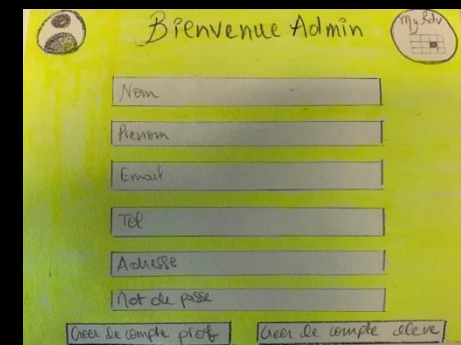 Bienvenue Admin
My Rdv
Nom
Prenom
Email
Tel
Adresse
Mot de passe
Creer le compte prof
Creer le compte eleve